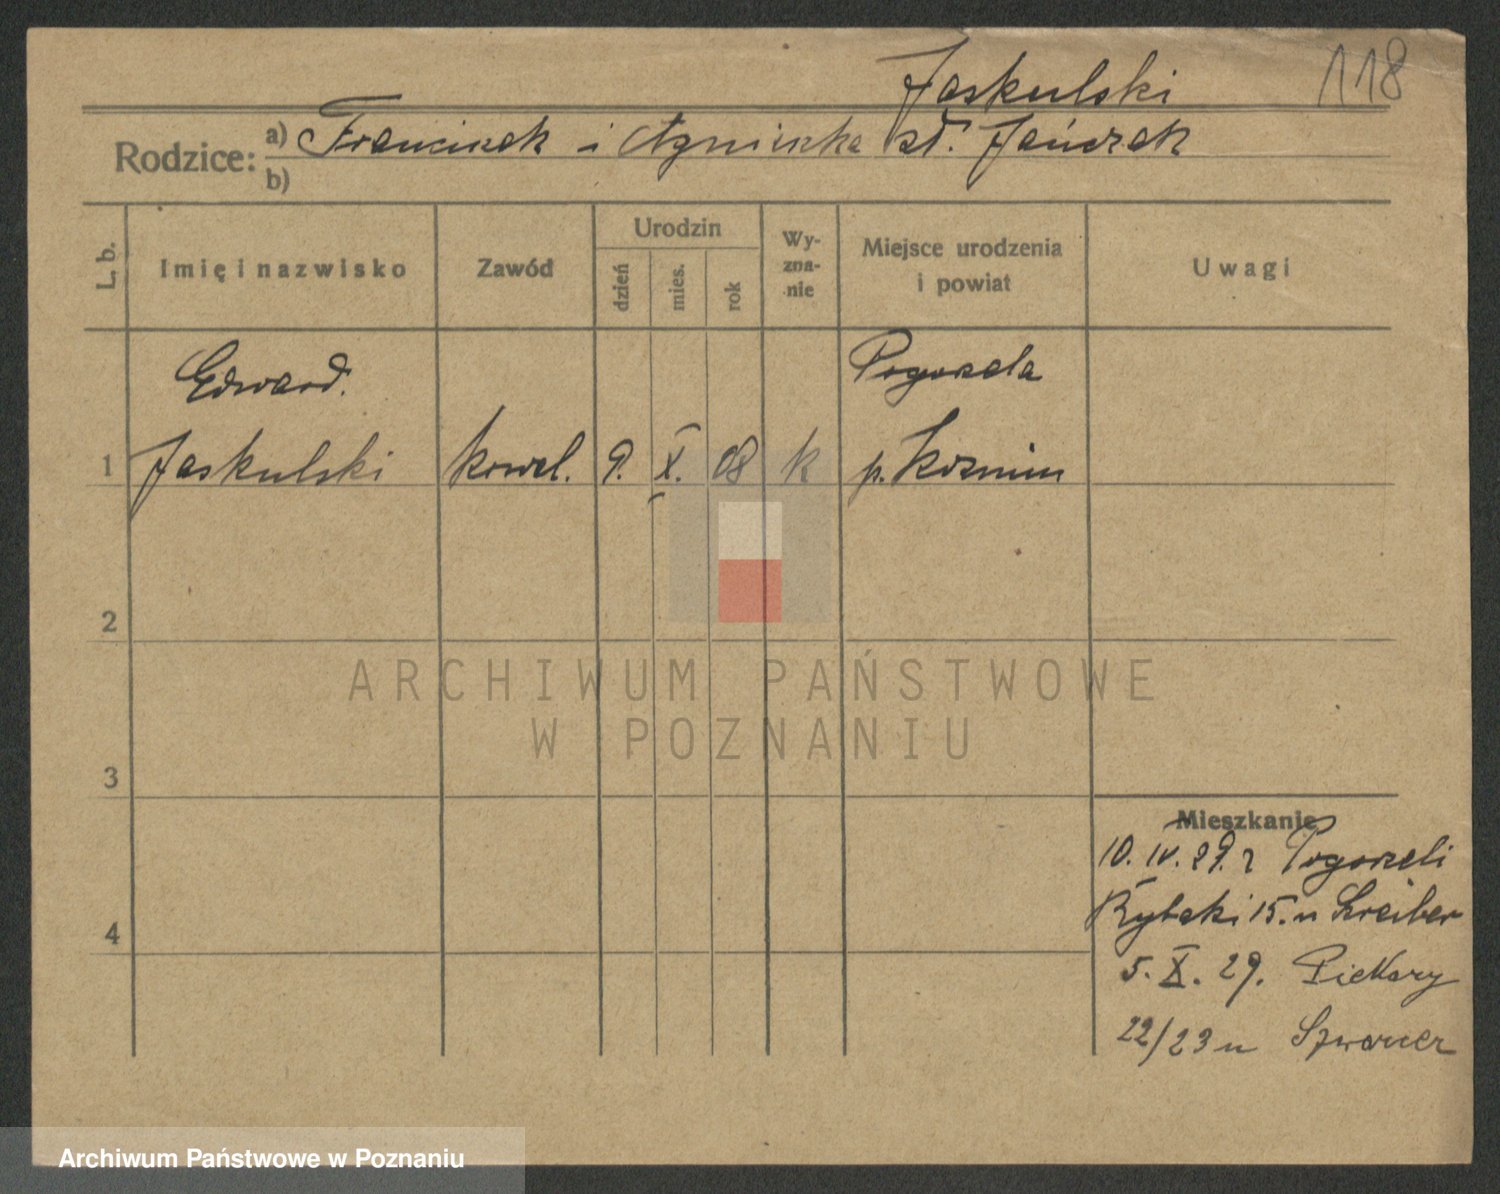 Jaskulski
118
Rodzice: a) Franciszek i Agnieszka zd. Jańczak
b)
L. b.
Imię i nazwisko
Zawód
Urodzin
dzień
mies.
rok
Wy-
zna-
nie
Miejsce urodzenia
i powiat
Uwagi
Edward.
Pogorzela
1 Jaskulski kowal. 9. X. 08 k p. Kozmim
2
3
4
Mieszkanie
10. IV. 29. z Pogorzeli
Rybaki 15. u Szreiber
5. X. 29. Piekary
22/23 u
ARCHIWUM PAŃSTWOWE
W POZNANIU
Archiwum Państwowe w Poznaniu